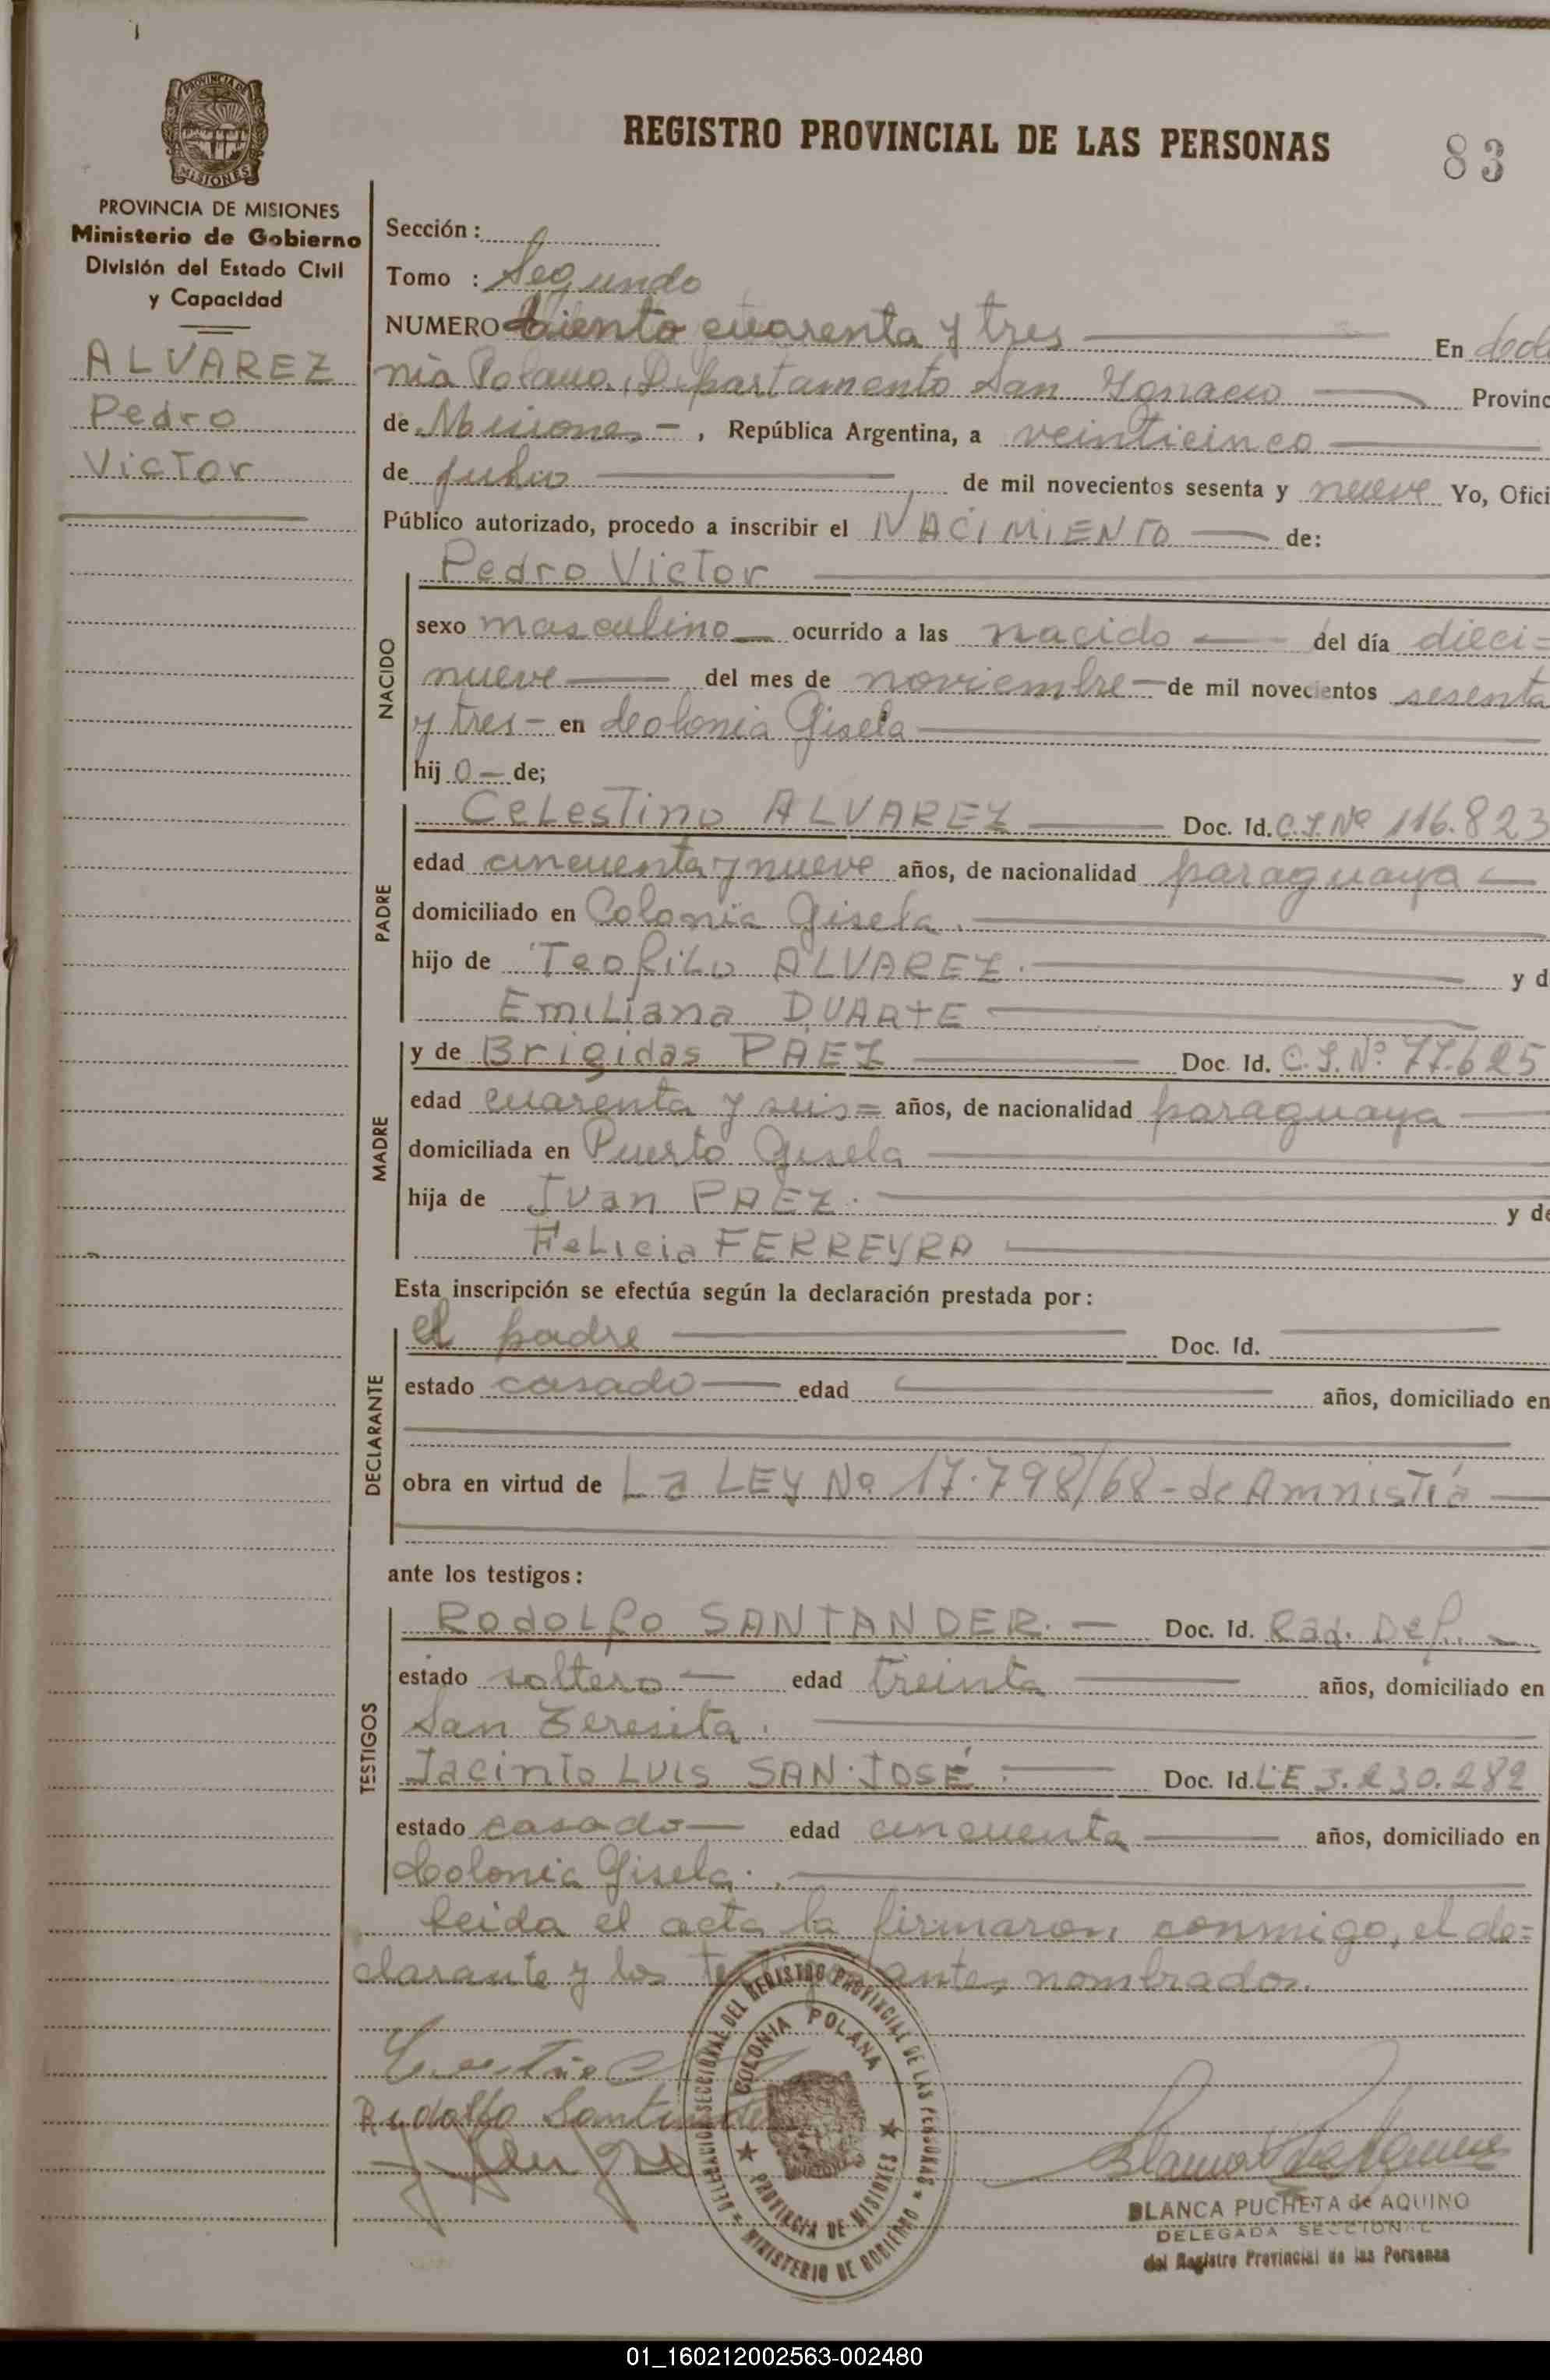 PROVINCIA DE
MISIONES
REGISTRO PROVINCIAL DE LAS PERSONAS
83
PROVINCIA DE MISIONES
Ministerio de Gobierno
División del Estado Civil
y Capacidad
ALVAREZ
Pedro
Victor
Sección :
Tomo : Segundo
NUMERO Ciento cuarenta y tres En Colo
nia Polana, Departamento San Ygnacio Provinc
de Misiones - , República Argentina, a veinticinco
de julio de mil novecientos sesenta y nueve Yo, Ofici
Público autorizado, procedo a inscribir el NACIMIENTO de:
NACIDO
Pedro Victor
sexo masculino ocurrido a las nacido del día dieci=
nueve del mes de noviembre de mil novecientos sesenta
y tres - en Colonia Gisela
hij o - de;
PADRE
Celestino ALVAREZ Doc. Id. C.I. Nº 116.823
edad cincuenta y nueve años, de nacionalidad paraguaya
domiciliado en Colonia Gisela.
hijo de Teofilo ALVAREZ. y d
Emiliana DUARTE
MADRE
y de Brigidas PAEZ Doc. Id. C.I. Nº. 77.625
edad cuarenta y seis = años, de nacionalidad paraguaya
domiciliada en Puerto Gisela
hija de Juan PAEZ. y de
Felicia FERREYRA
Esta inscripción se efectúa según la declaración prestada por:
DECLARANTE
el padre Doc. Id.
estado casado edad años, domiciliado en
obra en virtud de La LEY Nº 17.798/68 - de Amnistía
ante los testigos:
TESTIGOS
Rodolfo SANTANDER. Doc. Id. Rad. Def.
estado soltero edad treinta años, domiciliado en
San Teresita.
Jacinto LUIS SAN JOSÉ. Doc. Id. LE 3.230.282
estado casado edad cincuenta años, domiciliado en
Colonia Gisela.
Leida el acta la firmaron conmigo, el de=
clarante y los antes nombrados.
Rodolfo Santander
DELEGACION SECCIONAL DEL REGISTRO PROVINCIAL DE LAS PERSONAS
MINISTERIO DE GOBIERNO
COLONIA POLANA
PROVINCIA DE MISIONES
BLANCA PUCHETA de AQUINO
DELEGADA SECCIONAL
del Registro Provincial de las Personas
01_160212002563-002480